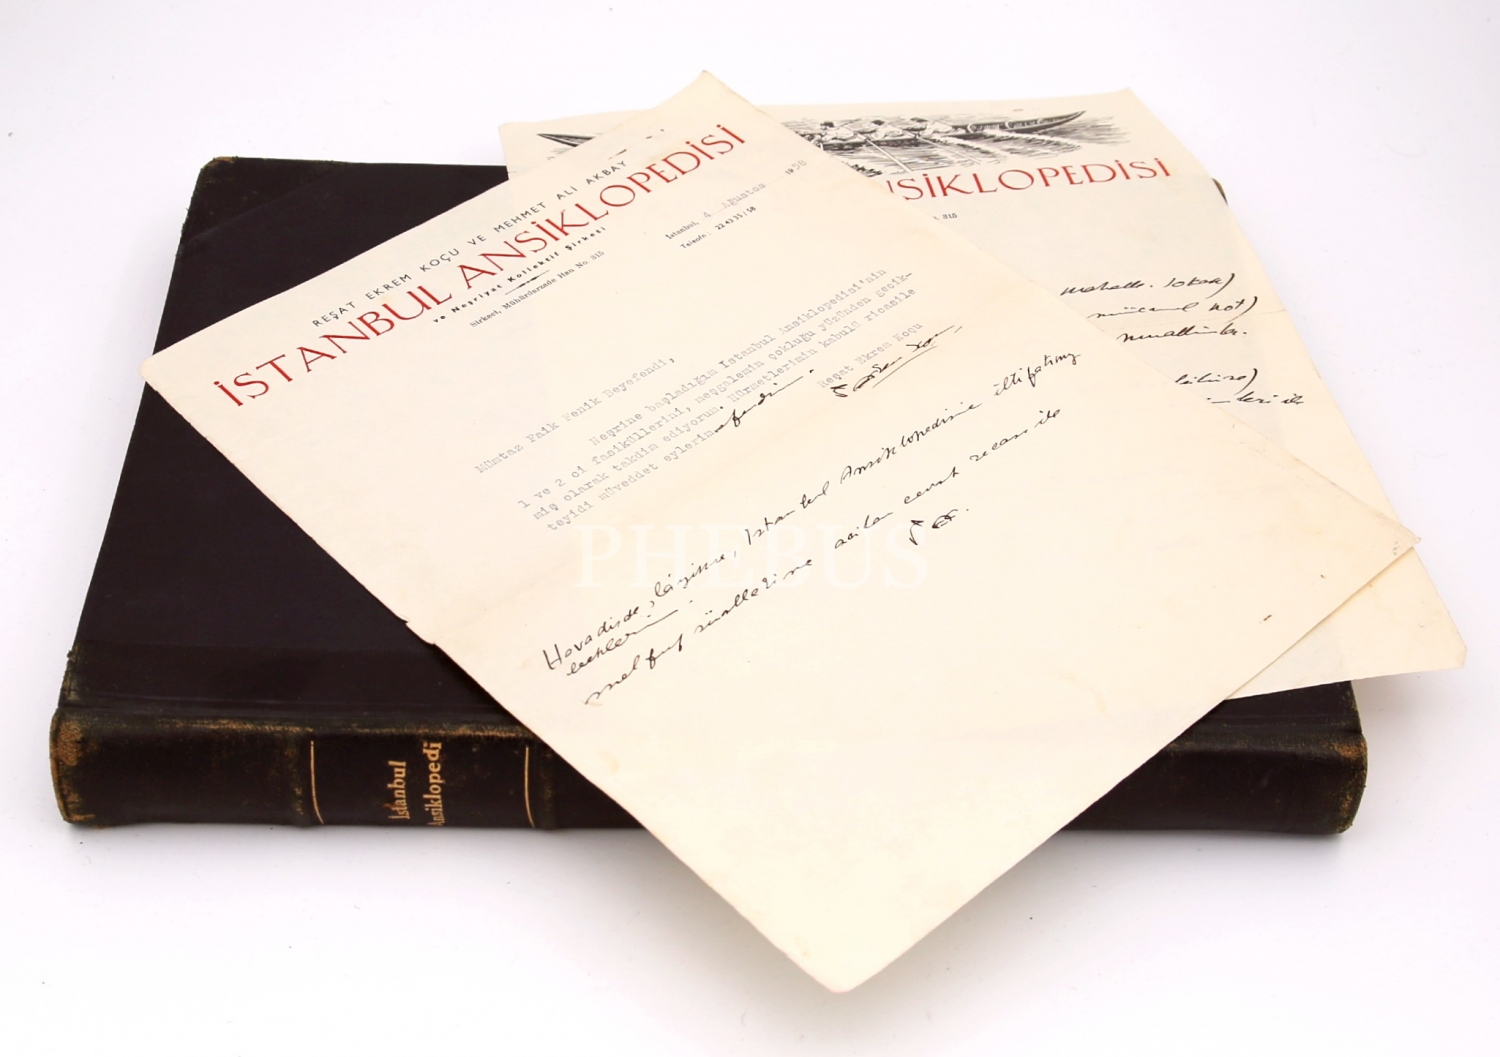 REŞAT EKREM KOÇU VE MEHMET ALİ AKBAY
İSTANBUL ANSİKLOPEDİSİ
ve Neşriyat Kollektif Şirketi
Sirkeci, Mühürdarzade Han No. 315
İstanbul, 4 Ağustos 1958
Telefon: 22 43 35 / 58
Mümtaz Faik Fenik Beyefendi,
Neşrine başladığım İstanbul Ansiklopedisi'nin
1 ve 2 ci fasiküllerini, meşgalemin çokluğu yüzünden gecik-
miş olarak takdim ediyorum. Hürmetlerimin kabulü ricasile
teyidi müveddet eylerim efendim.
Reşat Ekrem Koçu
Havadisde, lâyıksa, İstanbul Ansiklopedisine iltifatınız
melfuf suallerime acilen cevab ricası ile
ANSİKLOPEDİSİ
315
mahalle. sokak)
not)
muallimler.
İstanbul
Ansiklopedi
PHEBUS